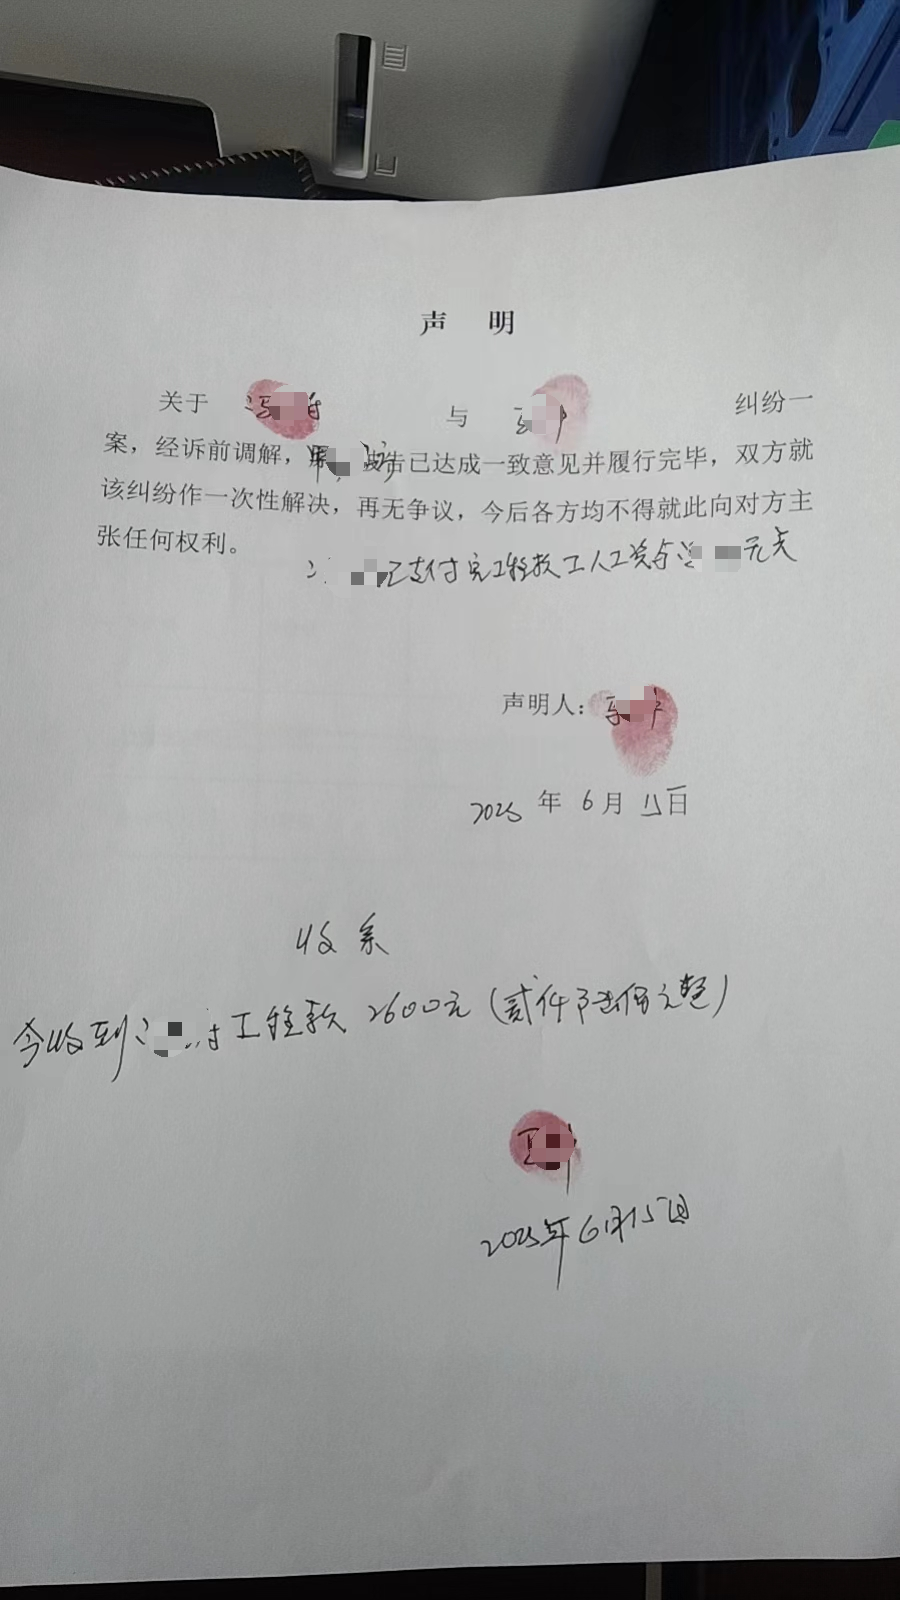 声 明
关于 与 纠纷一
案，经诉前调解， 告已达成一致意见并履行完毕，双方就
该纠纷作一次性解决，再无争议，今后各方均不得就此向对方主
张任何权利。
已支付完工程款工人工资 元
声明人：
2025 年 6 月 15日
收条
今收到 工程款 2600元（贰仟陆佰元整）
2025年6月15日